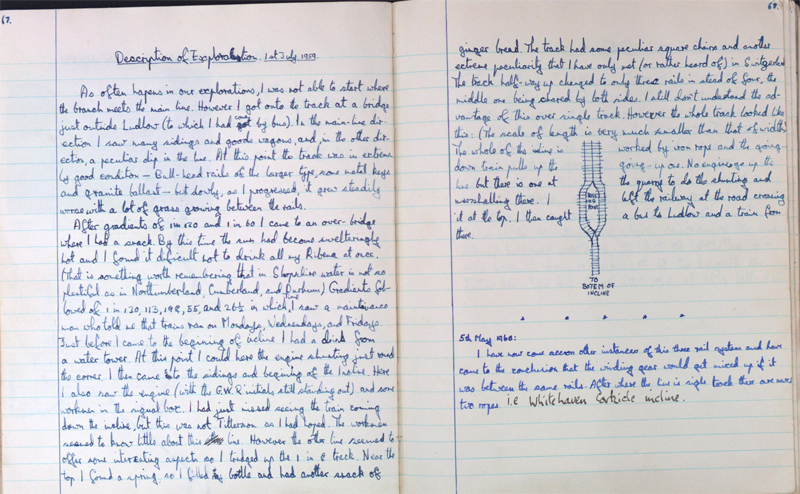 67.
Description of Exploration. 1st July. 1959.
As often hapens in our explorations, I was not able to start where
the branch meets the main line. However I got onto the track at a bridge
just outside Ludlow (to which I had come by bus). In the main-line dir-
ection I saw many sidings and goods wagons, and, in the other dir-
ection, a peculiar dip in the line. At this point the track was in extreme-
ly good conditon – Bull-head rails of the larger type, some metal keys
and granite ballast – but slowly, as I progressed, it grew steadily
worse with a lot of grass growing between the rails.
After gradients of 1 in 120 and 1 in 60 I came to an over-bridge
where I had a snack. By this time the sun had become swelteringly
hot and I found it difficult not to drink all my Ribena at once.
(That is something worth remembering that in Shropshire water is not so
plentiful as in Northumberland, Cumberland, and Durham) Gradients fol-
lowed of 1 in 120, 113, 198, 55, and 26½ in which time I saw a maintainance
man who told me that trains ran on Mondays, Wednesdays, and Fridays.
Just before I came to the begining of incline I had a drink from
a water tower. At this point I could here the engine shunting just round
the corner. I then came into the sidings and begining of the Incline. Here
I also saw the engine (with the G.W.R initials still standing out) and some
workmen in the signal box. I had just missed seeing the train coming
down the incline, but this was not Titterson as I had hoped. The workmen
seemed to know little about this line. However the other line seemed to
offer some interesting aspects so I trudged up the 1 in 8 track. Near the
top I found a spring so I filled my bottle and had another snack of
68.
ginger bread. The track had some peculiar square chairs and another
extreme peculiarity that I have only met (or rather heard of) in Switzerland
The track half-way up changed to only three rails in stead of four, the
middle one being shared by both sides. I still don't understand the ad-
vantage of this over single track. However the whole track looked like
this: (The scale of length is very much smaller than that of width)
The whole of the incline is worked by iron ropes and the going-
down train pulls up the going-up one. No engines go up the
line but there is one at the quarry to do the shunting and
marshalling there. I left the railway at the road crossing
it at the top. I then caught a bus to Ludlow and a train from
there.
TO
BOTEM OF
INCLINE
5th May 1960:
I have now come across other instances of this three rail system and have
come to the conclusion that the winding gear would get mixed up if it
was between the same rails. After where the line is single track there are never
two ropes. i.e Whitehaven Corkicle incline.